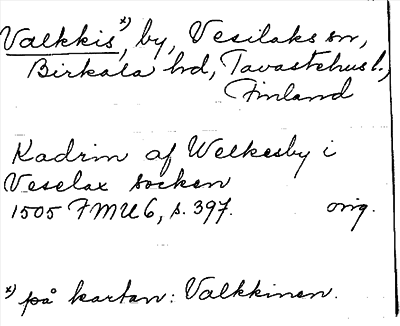 Valkkis*), by, Vesilaks sn,
Birkala hd, Tavastehus l.,
Finland
Kadrin af Welkesby i
Veselax socken
1505 FMU 6, s. 397. orig.
*) på kartan: Valkkinen.